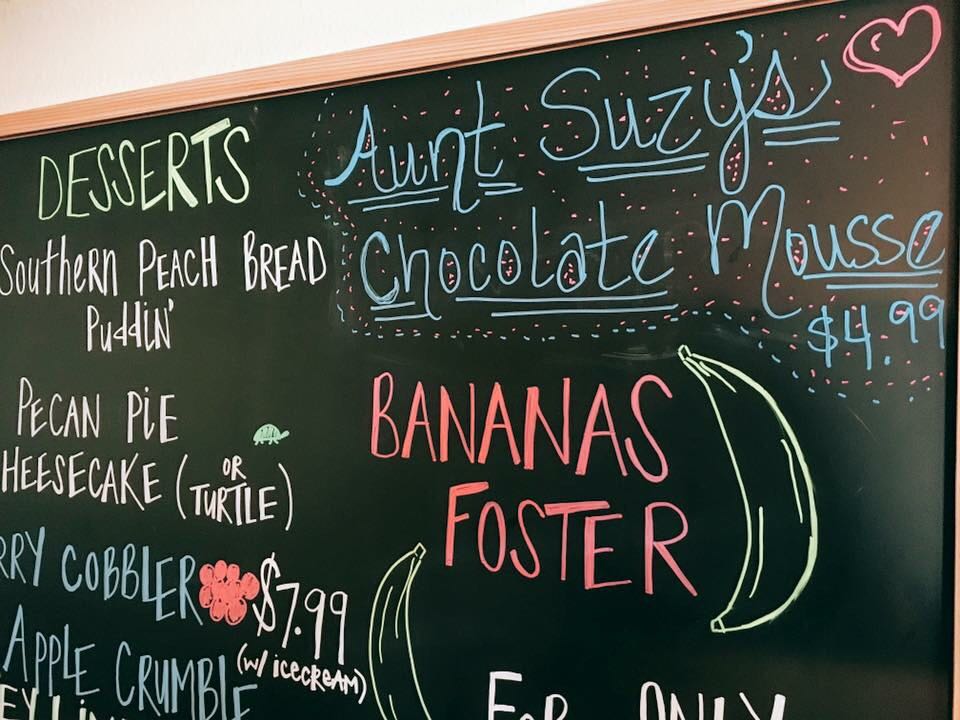 DESSERTS
Southern PEACH BREAD
Puddin'
PECAN PiE
HEESECAKE (OR TURTLE)
RRY COBBLER $7.99
(w/ icecream)
APPLE CRUMBLE
EY LIM
Aunt Suzy's
Chocolate Mousse
$4.99
BANANAS
FOSTER
FOR ONLY